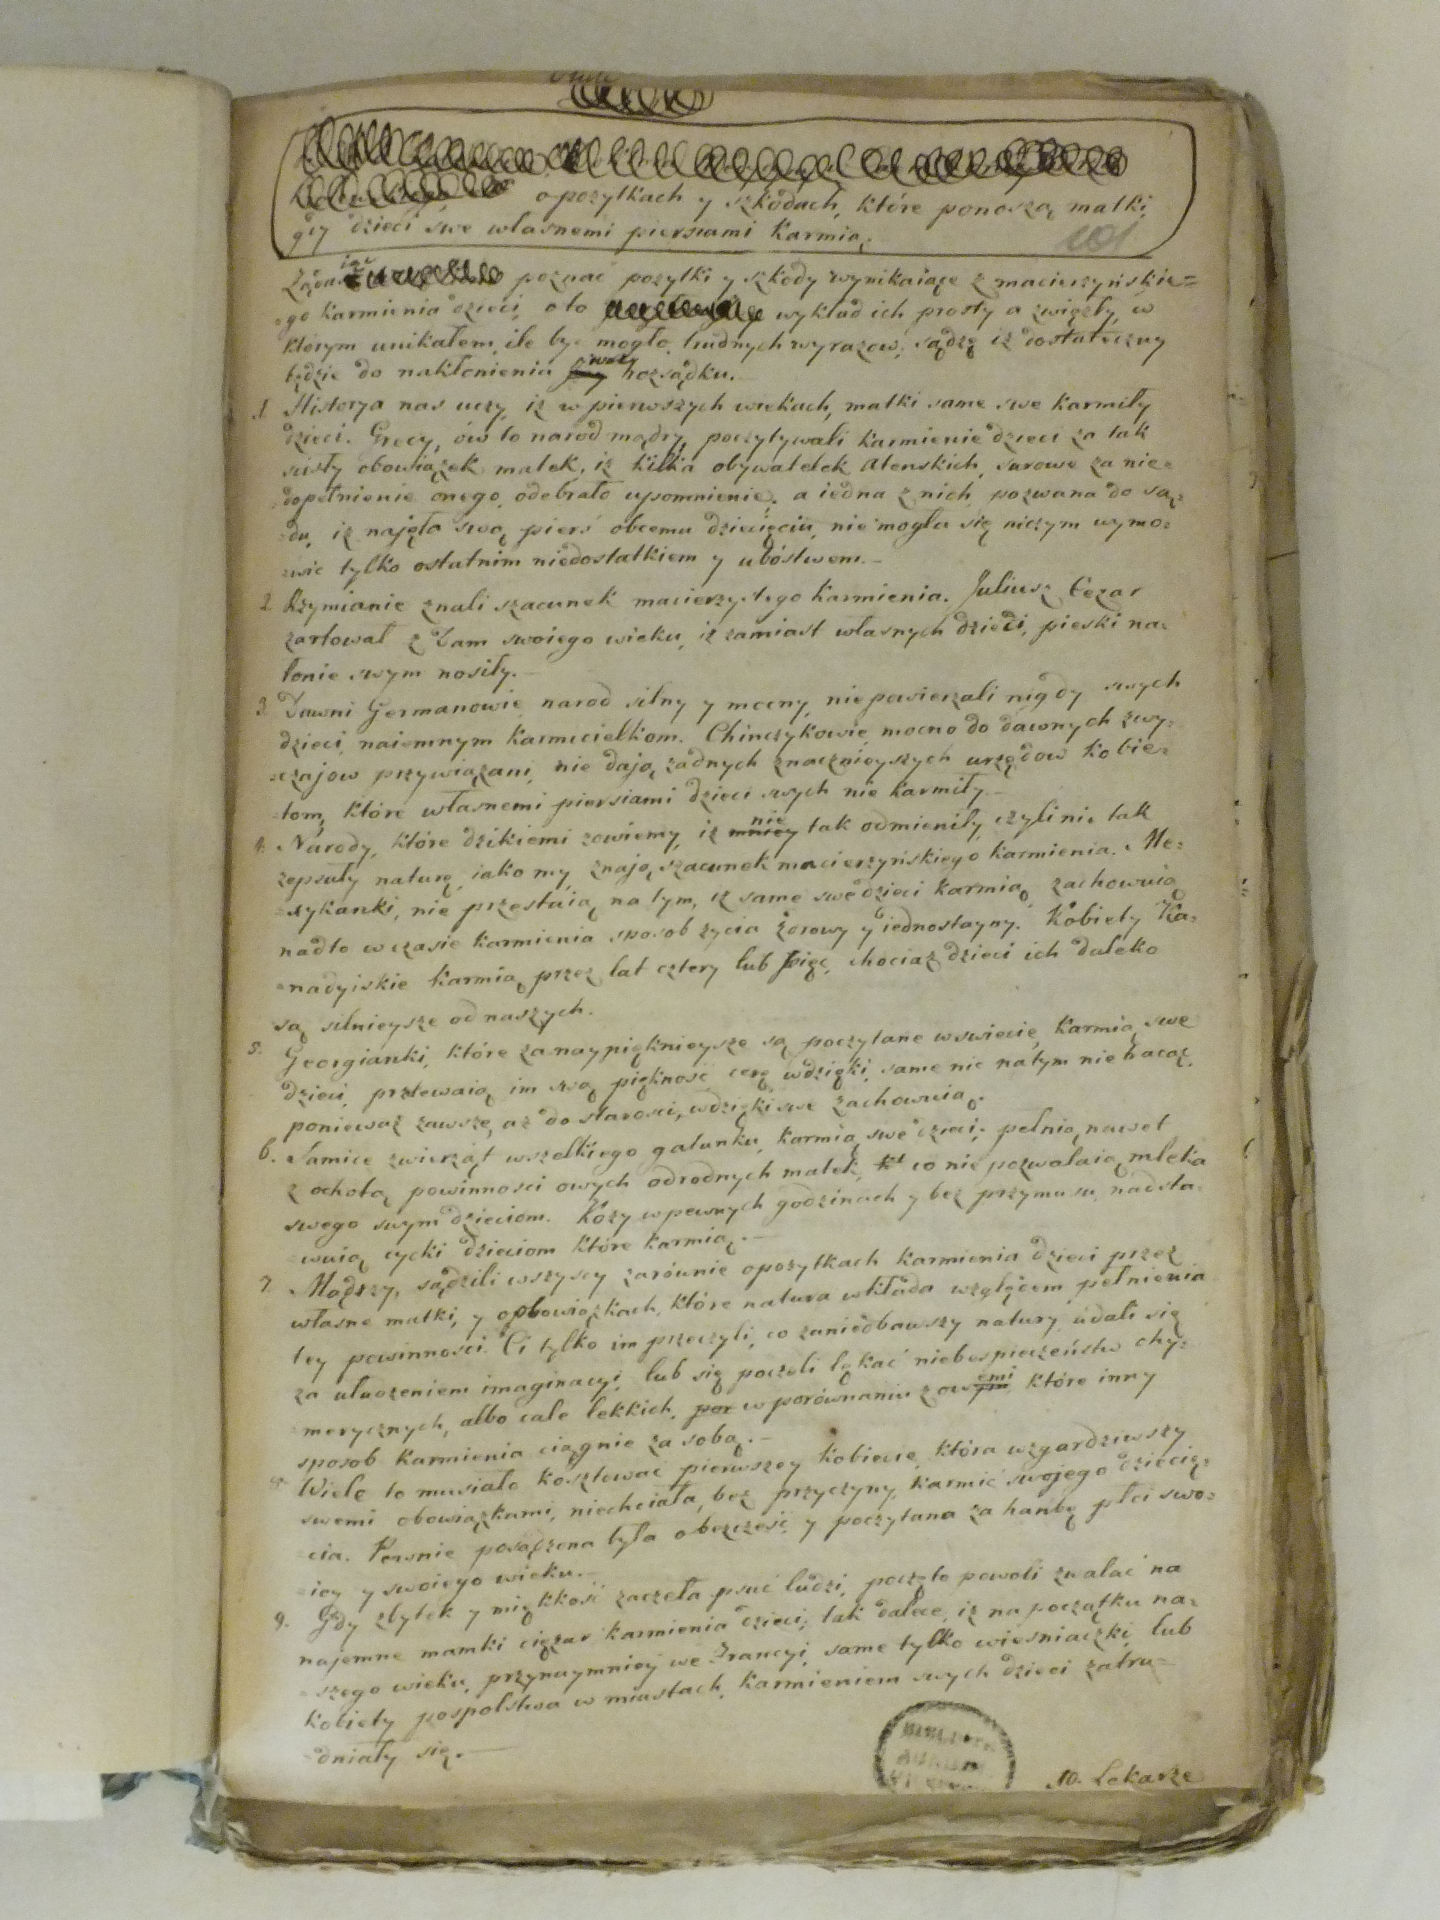 o pożytkach y szkodach, które ponoszą matki,
gdy dzieci swe własnemi piersiami karmią.
101
poznać pożytki y szkody wynikaiące z macierzyńskie=
=go karmienia dzieci, oto wykład ich prosty a zwięzły, w
którym unikałem, ile być mogło, trudnych wyrazow; sądzę iż dostateczny
będzie do nakłonienia rozsądku.
1. Historya nas uczy, iż w pierwszych wiekach, matki same swe karmiły
dzieci. Grecy, ów to narod mądry, poczytywali karmienie dzieci za tak
scisły obowiązek matek, iż kilka obywatelek Atenskich, surowe za nie=
=dopełnienie onego, odebrało upomnienie; a iedna z nich, pozwana do są=
=du, iż najęła swą pierś obcemu dziecięciu, nie mogła się niczym wymo=
=wić tylko ostatnim niedostatkiem y ubóstwem.—
2. Rzymianie znali szacunek macierzystego karmienia. Juliusz Cezar
żartował z Dam swoiego wieku, iż zamiast własnych dzieci, pieski na
łonie swym nosiły.—
3. Dawni Germanowie, narod silny y mocny, nie powierzali nigdy swych
dzieci, naiemnym karmicielkom. Chinczykowie, mocno do dawnych zwy=
=czajow przywiązani, nie dają żadnych znacznieyszych urzędow kobie=
=tom, które własnemi piersiami dzieci swych nie karmiły.—
4. Narody, które dzikiemi zowiemy, iż mniey nie tak odmieniły, czyli nie tak
zepsuły naturę, iako my, znają szacunek macierzyńskiego karmienia. Me=
=xykanki, nie przestaią na tym, iż same swe dzieci karmią, zachowuią
nadto w czasie karmienia sposob życia zdrowy y iednostayny. Kobiety Ka=
=nadyiskie karmią przez lat cztery lub pięć, chociaż dzieci ich daleko
są silnieysze od naszych.
5. Georgianki, które za naypięknieysze są poczytane w swiecie, karmią swe
dzieci, przlewaią im swą piękność cerę wdzięki, same nic na tym nie tracąc,
ponieważ zawsze, aż do starosci, wdzięki swe zachowuią.
6. Samice zwierząt wszelkiego gatunku, karmią swe dzieci; pełnią nawet
z ochotą powinnosci owych odrodnych matek, kt co nie pozwalaią mleka
swego swym dzieciom. Kozy w pewnych godzinach y bez przymusu, nadsta=
=wuią cycki dzieciom które karmią.—
7. Mądrzy, sądzili wszyscy zarównie o pożytkach karmienia dzieci przez
własne matki, y o obowiązkach, które natura wkłada względem pełnienia
tey powinności. Ci tylko im przeczyli, co zaniedbawszy natury, udali się
za złudzeniem imaginacyi, lub się poczęli lękać niebespieczeństw chy=
=merycznych, albo cale lekkich, por w porównaniu z owemi, które inny
sposob karmienia ciągnie za sobą.—
8. Wiele to musiało kosztować pierwszey kobiecie, która wzgardziwszy
swemi obowiązkami, niechciała, bez przyczyny, karmić swojego dziecię=
=cia. Pewnie posądzona była o bezcześć, y poczytana za hańbę płci swo=
=iey y swoiego wieku.—
9. Gdy zbytek y miękkość zaczęła psuć ludzi, poczęto powoli zwalać na
najemne mamki ciężar karmienia dzieci; tak dalece, iż na początku na=
=szego wieku, przynaymniey we Francyi, same tylko wiesniaczki, lub
kobiety pospolstwa w miastach, karmieniem swych dzieci zatru=
=dniały się.—
10. Lekarze